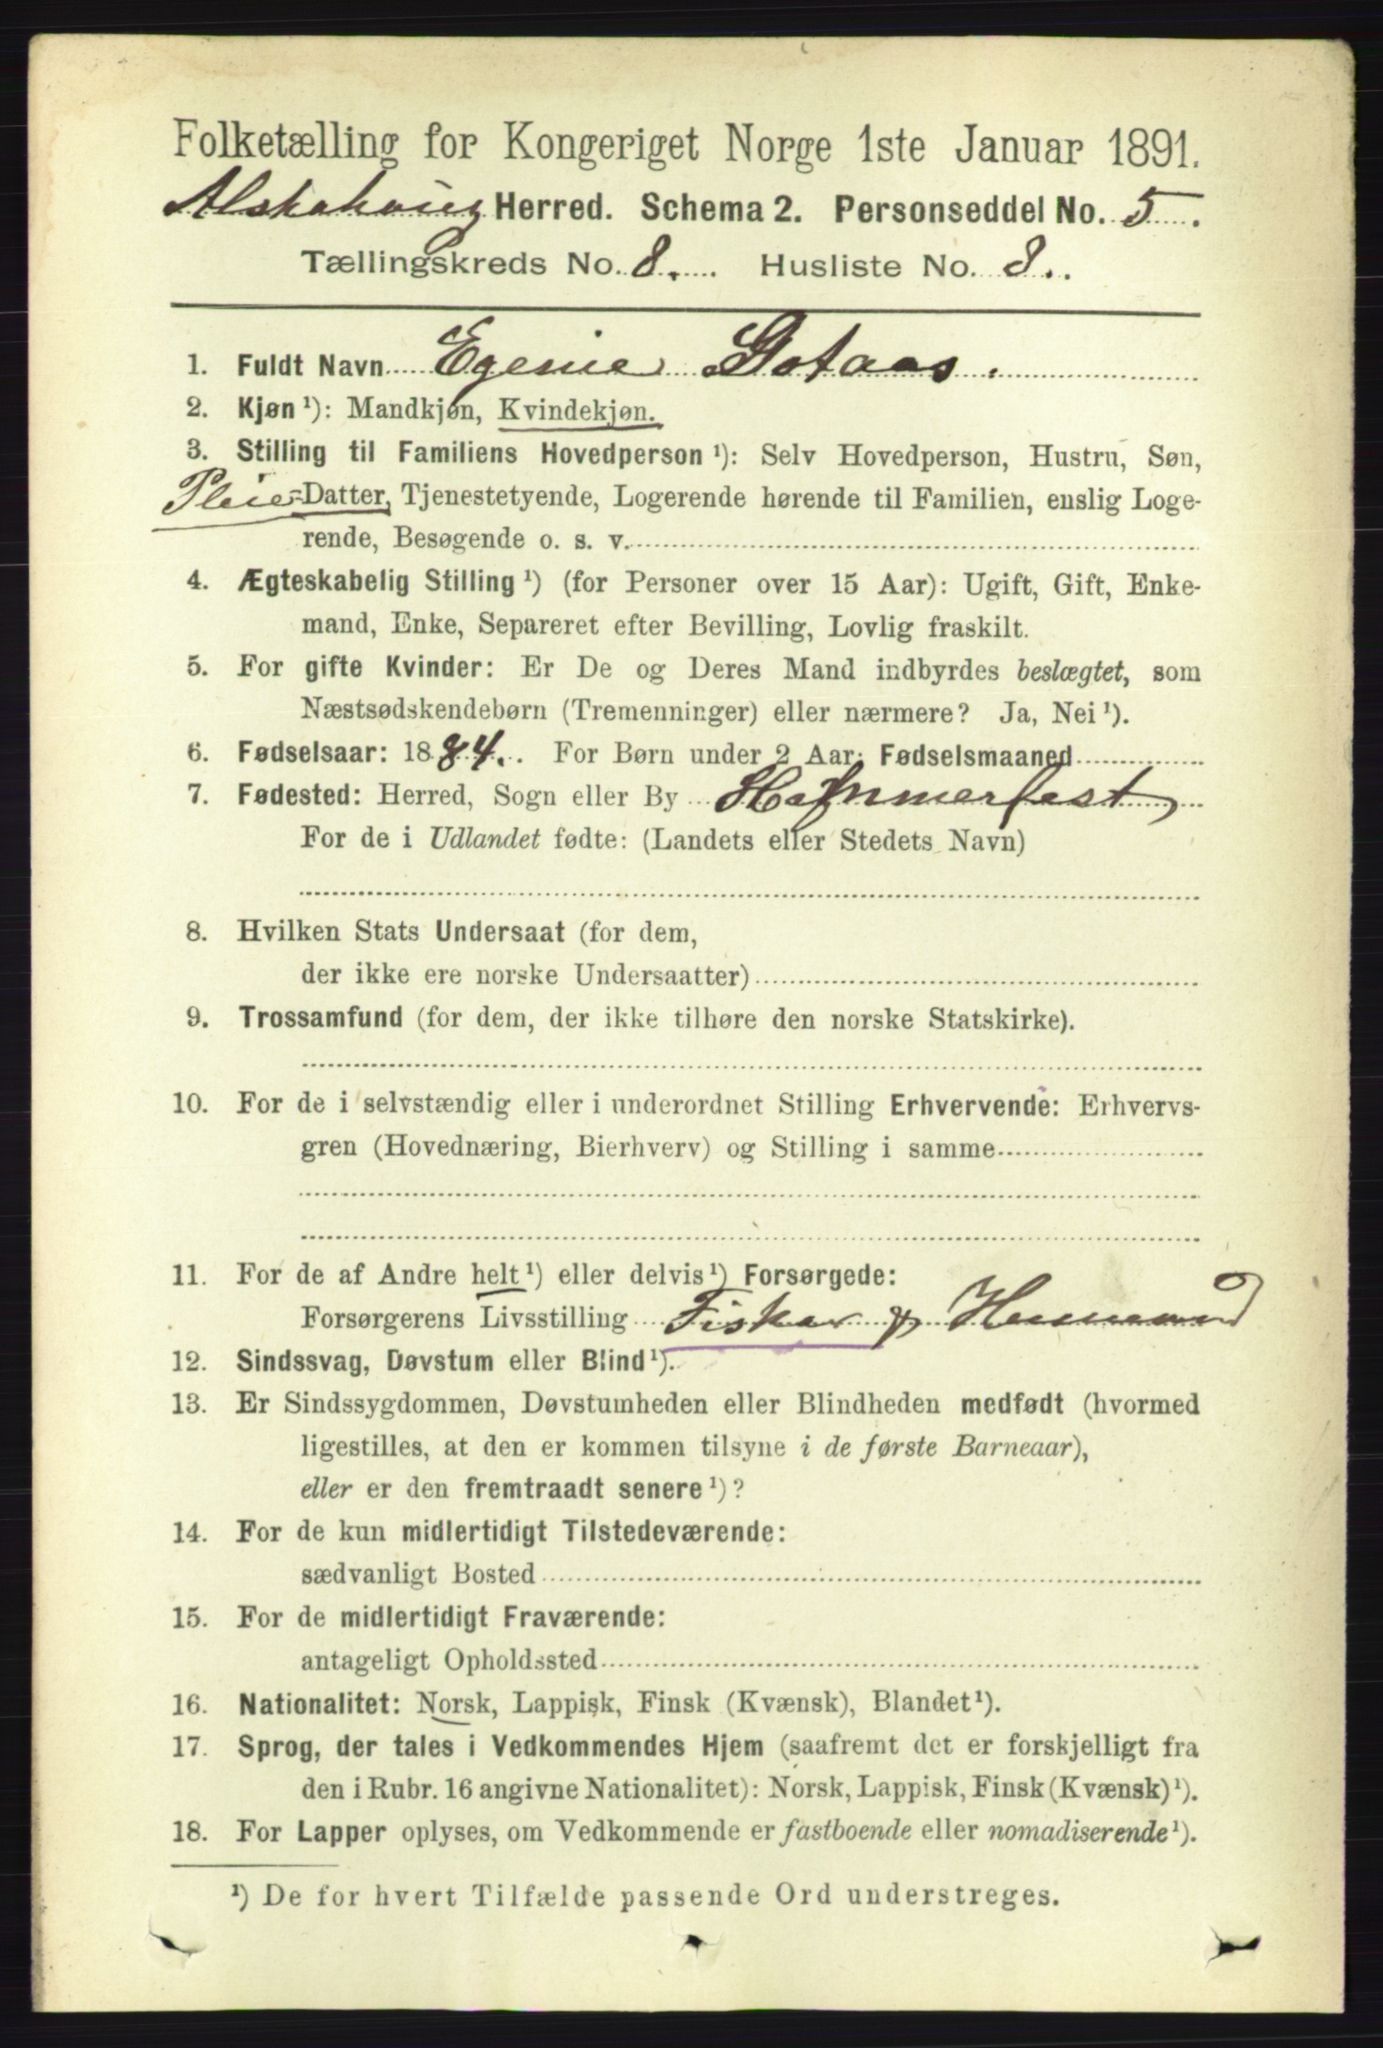 Folketælling for Kongeriget Norge 1ste Januar 1891.
Alstahoug Herred. Schema 2. Personseddel No. 5.
Tællingskreds No. 8. Husliste No. 8.
1. Fuldt Navn Egenie Gotaas.
2. Kjøn ¹): Mandkjøn, Kvindekjøn.
3. Stilling til Familiens Hovedperson ¹): Selv Hovedperson, Hustru, Søn,
Pleie= Datter, Tjenestetyende, Logerende hørende til Familien, enslig Loge-
rende, Besøgende o. s. v.
4. Ægteskabelig Stilling ¹) (for Personer over 15 Aar): Ugift, Gift, Enke-
mand, Enke, Separeret efter Bevilling, Lovlig fraskilt.
5. For gifte Kvinder: Er De og Deres Mand indbyrdes beslægtet, som
Næstsødskendebørn (Tremenninger) eller nærmere? Ja, Nei ¹).
6. Fødselsaar: 1884. For Børn under 2 Aar: Fødselsmaaned
7. Fødested: Herred, Sogn eller By Hammerfest
For de i Udlandet fødte: (Landets eller Stedets Navn)
8. Hvilken Stats Undersaat (for dem,
der ikke ere norske Undersaatter)
9. Trossamfund (for dem, der ikke tilhøre den norske Statskirke).
10. For de i selvstændig eller i underordnet Stilling Erhvervende: Erhvervs-
gren (Hovednæring, Bierhverv) og Stilling i samme
11. For de af Andre helt ¹) eller delvis ¹) Forsørgede:
Forsørgerens Livsstilling Fisker &
12. Sindssvag, Døvstum eller Blind ¹).
13. Er Sindssygdommen, Døvstumheden eller Blindheden medfødt (hvormed
ligestilles, at den er kommen tilsyne i de første Barneaar),
eller er den fremtraadt senere ¹)?
14. For de kun midlertidigt Tilstedeværende:
sædvanligt Bosted
15. For de midlertidigt Fraværende:
antageligt Opholdssted
16. Nationalitet: Norsk, Lappisk, Finsk (Kvænsk), Blandet ¹).
17. Sprog, der tales i Vedkommendes Hjem (saafremt det er forskjelligt fra
den i Rubr. 16 angivne Nationalitet): Norsk, Lappisk, Finsk (Kvænsk) ¹).
18. For Lapper oplyses, om Vedkommende er fastboende eller nomadiserende ¹).
¹) De for hvert Tilfælde passende Ord understreges.